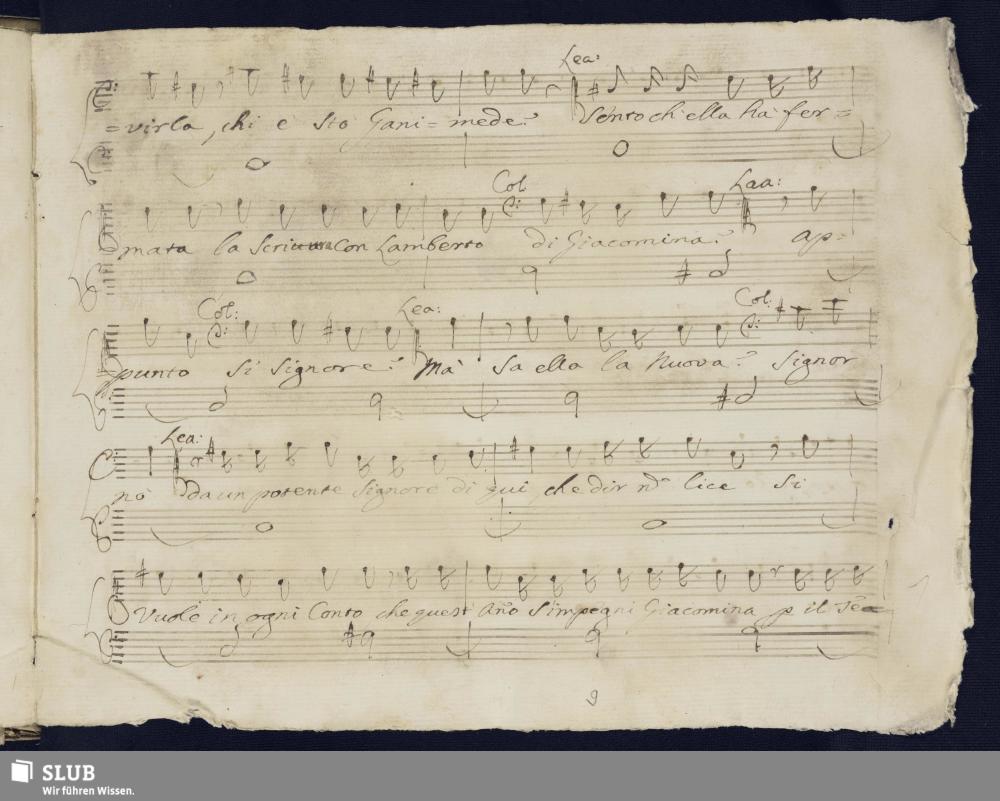 Lea:
=virla, chi è sto Gani=mede? Sento ch'ella ha fer=
Col Lea:
mata la Scrittura Con Lamberto di Giacomina? ap=
Col: Lea: Col:
=punto Si Signore? Mà sa ella la Nuova? Signor
Lea:
nò da un potente Signore di qui, che dir nõ lice Si
Vuole in ogni Conto che quest Año s'impegni Giacomina p il
9
SLUB
Wir führen Wissen.